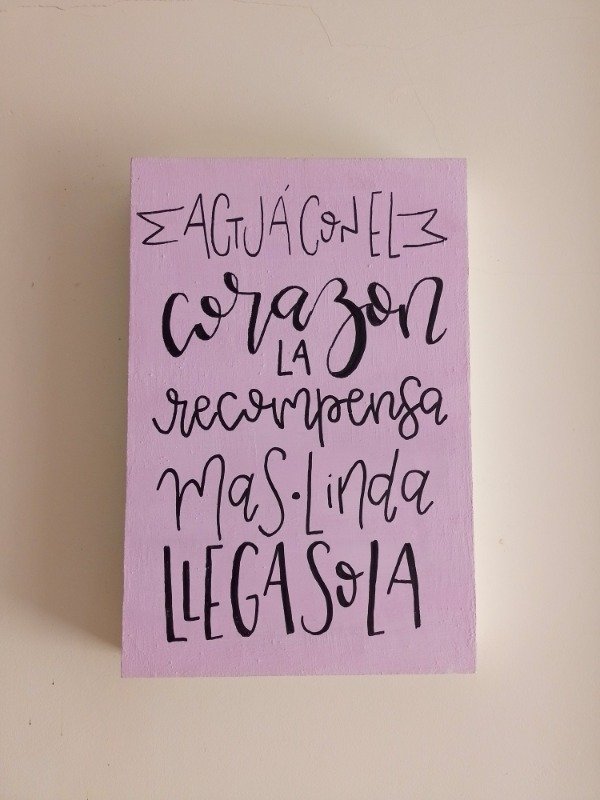 ACTUÁ CON EL
corazon
LA
recompensa
mas · Linda
LLEGA SOLA